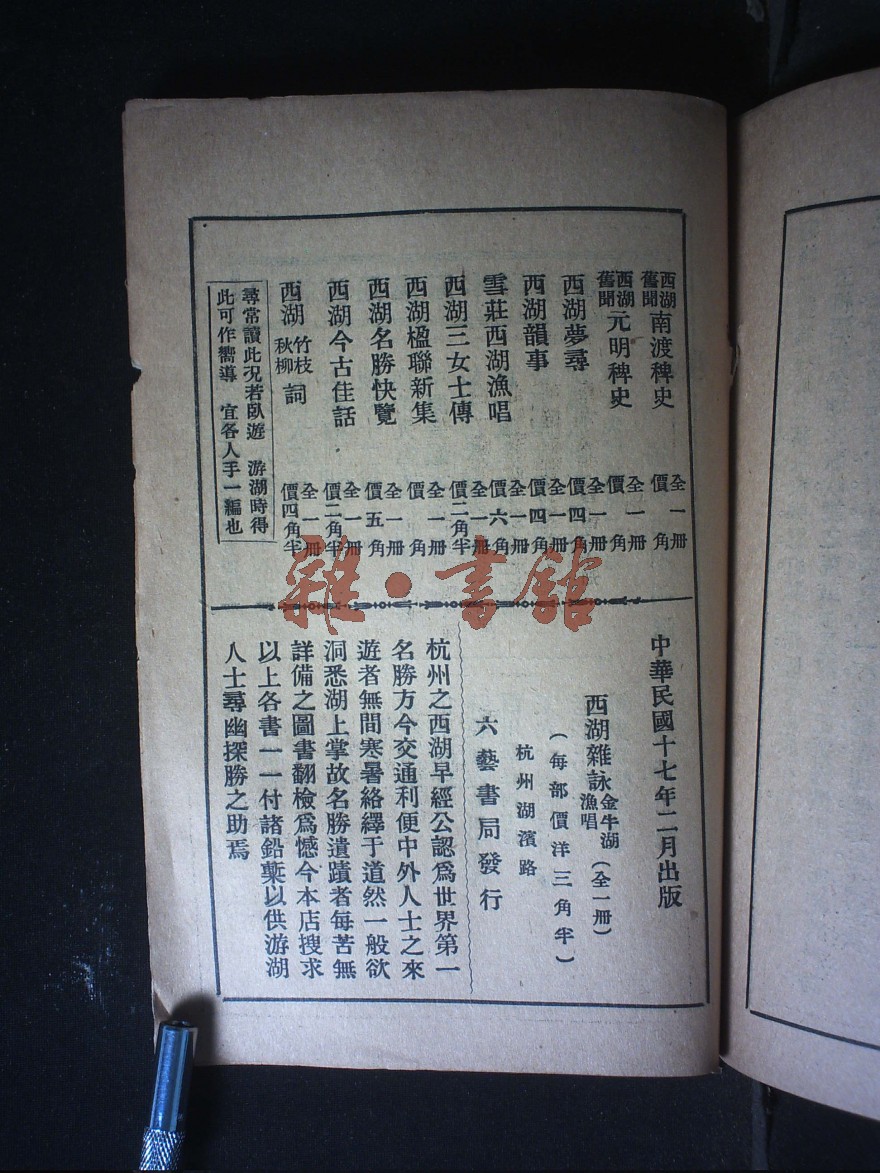 西湖舊聞 南渡稗史 全一冊 價一角
西湖舊聞 元明稗史 全一冊 價 角
西湖夢尋 全一冊 價四角
西湖韻事 全一冊 價四角
雪莊西湖漁唱 全一冊 價六角
西湖三女士傳 全一冊 價二角半
西湖楹聯新集 全一冊 價 角
西湖名勝快覽 全一冊 價五角
西湖今古佳話 全一冊 價二角半
西湖竹枝秋柳詞 全一冊 價四角半
尋常讀此況若臥遊 游湖時得
此可作嚮導 宜各人手一編也
雜·書館
中華民國十七年二月出版
西湖雜詠金牛湖漁唱(全一冊)
(每部價洋三角半)
杭州湖濱路
六藝書局發行
杭州之西湖早經公認爲世界第一
名勝方今交通利便中外人士之來
遊者無間寒暑絡繹于道然一般欲
洞悉湖上掌故名勝遺蹟者每苦無
詳備之圖書翻檢爲憾今本店搜求
以上各書一一付諸鉛槧以供游湖
人士尋幽探勝之助焉